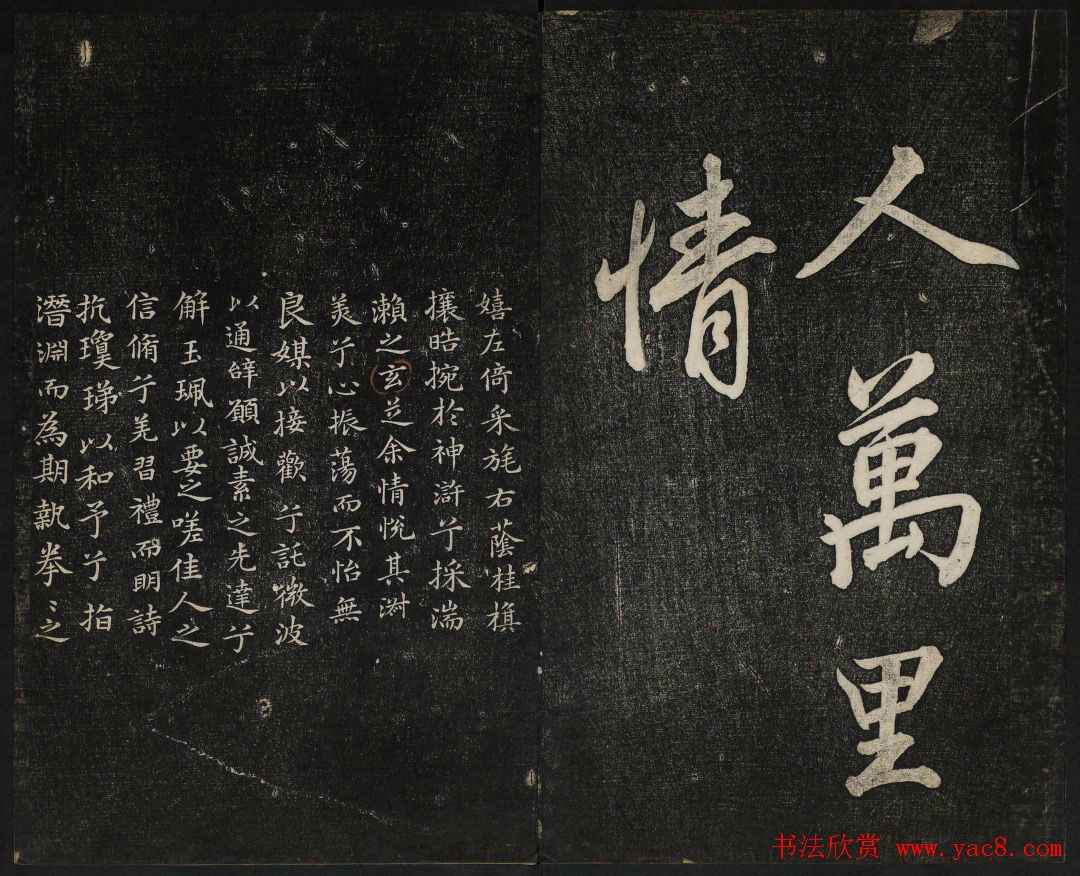 人萬里
情
嬉左倚采旄右蔭桂旗
攘皓捥於神滸兮採湍
瀨之玄芝余情悅其淑
美兮心振蕩而不怡無
良媒以接歡兮託微波
以通辭願誠素之先達兮
解玉珮以要之嗟佳人之
信脩兮羌習禮而明詩
抗瓊珶以和予兮指
潛淵而為期執拳〻之
书法欣赏 www.yac8.com